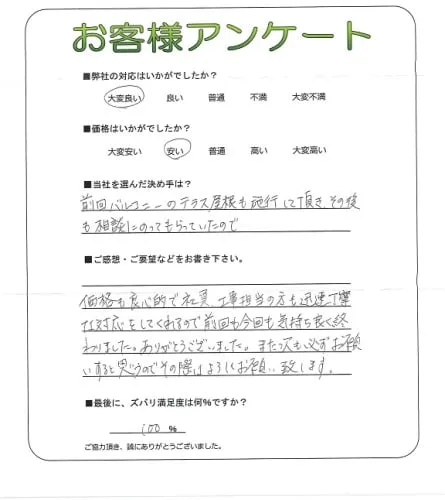 お客様アンケート
■弊社の対応はいかがでしたか?
大変良い 良い 普通 不満 大変不満
■価格はいかがでしたか?
大変安い 安い 普通 高い 大変高い
■当社を選んだ決め手は?
前回バルコニーのテラス屋根も施行して頂き、その後
も相談にのってもらっていたので
■ご感想・ご要望などをお書き下さい。
価格も良心的で社員、工事担当の方も迅速丁寧
な対応をしてくれるので前回も今回も気持ち良く終
わりました。ありがとうございました。また次も必ずお願
いすると思うのでその際はよろしくお願い致します。
■最後に、ズバリ満足度は何%ですか?
100 %
ご協力頂き、誠にありがとうございました。